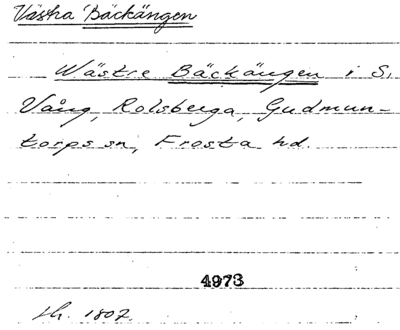 Västra Bäckängen
Wästre Bäckängen i S.
Vång, Rolsberga, Gudmun-
torps sn, Frosta hd.
4973
Lh. 1807.